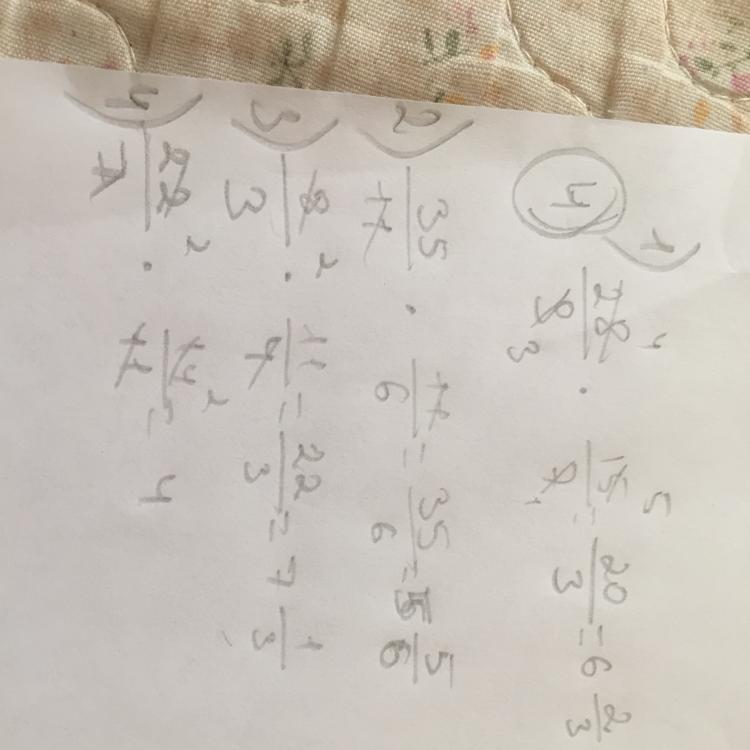 ④ 1) 28/9 4 3 · 15/7 5 1 = 20/3 = 6 2/3
2) 35/11 · 11/6 = 35/6 = 5 5/6
3) 8/3 2 · 11/4 = 22/3 = 7 1/3
4) 22/7 2 · 14/11 2 = 4